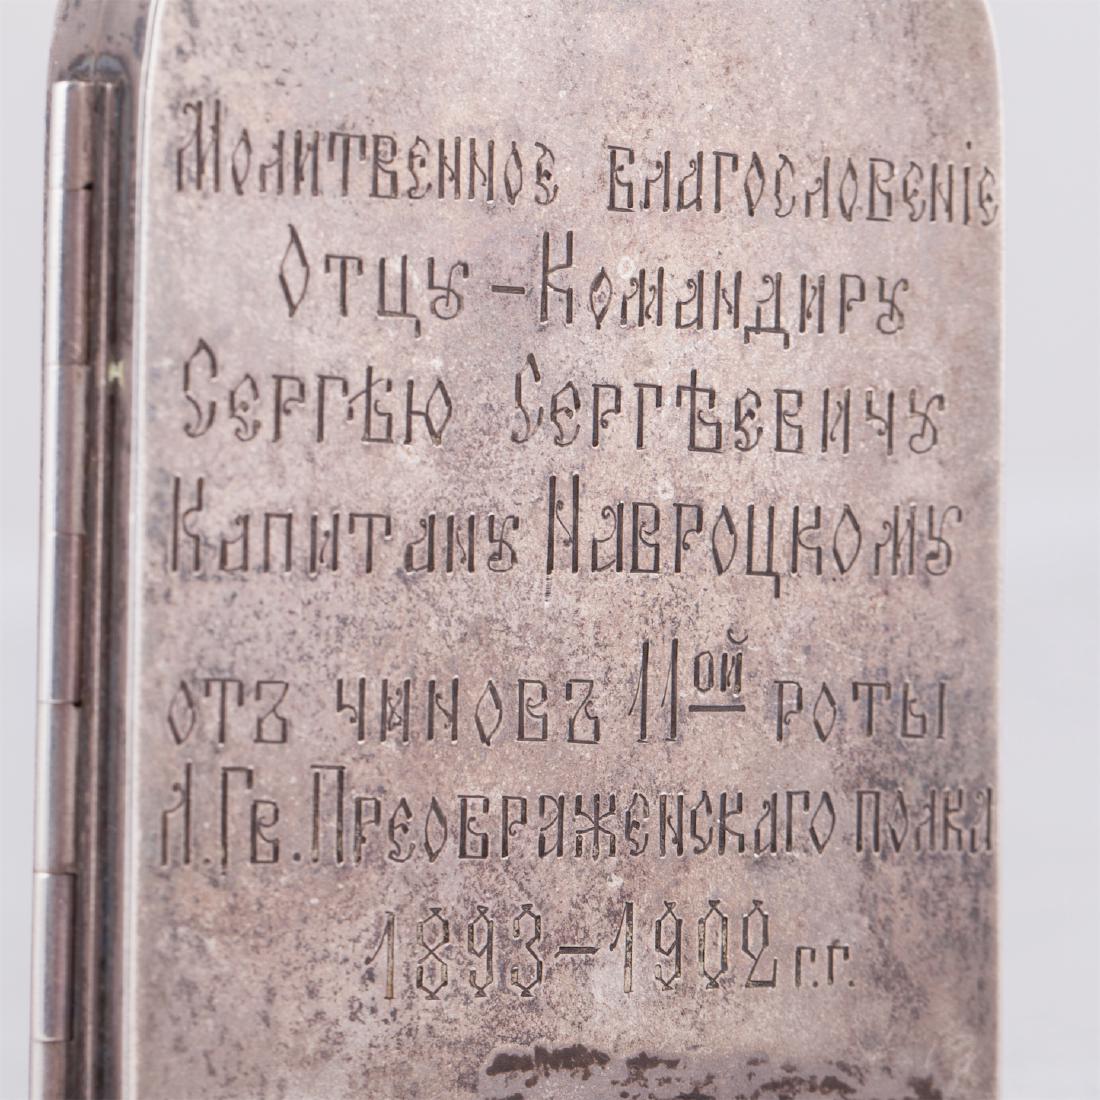 Молитвенное благословеніе
Отцу-Командиру
Сергѣю Сергѣевичу
Капитану Навроцкому
отъ чиновъ 11ой роты
Л.Гв.Преображенскаго полка
1893-1902 г.г.